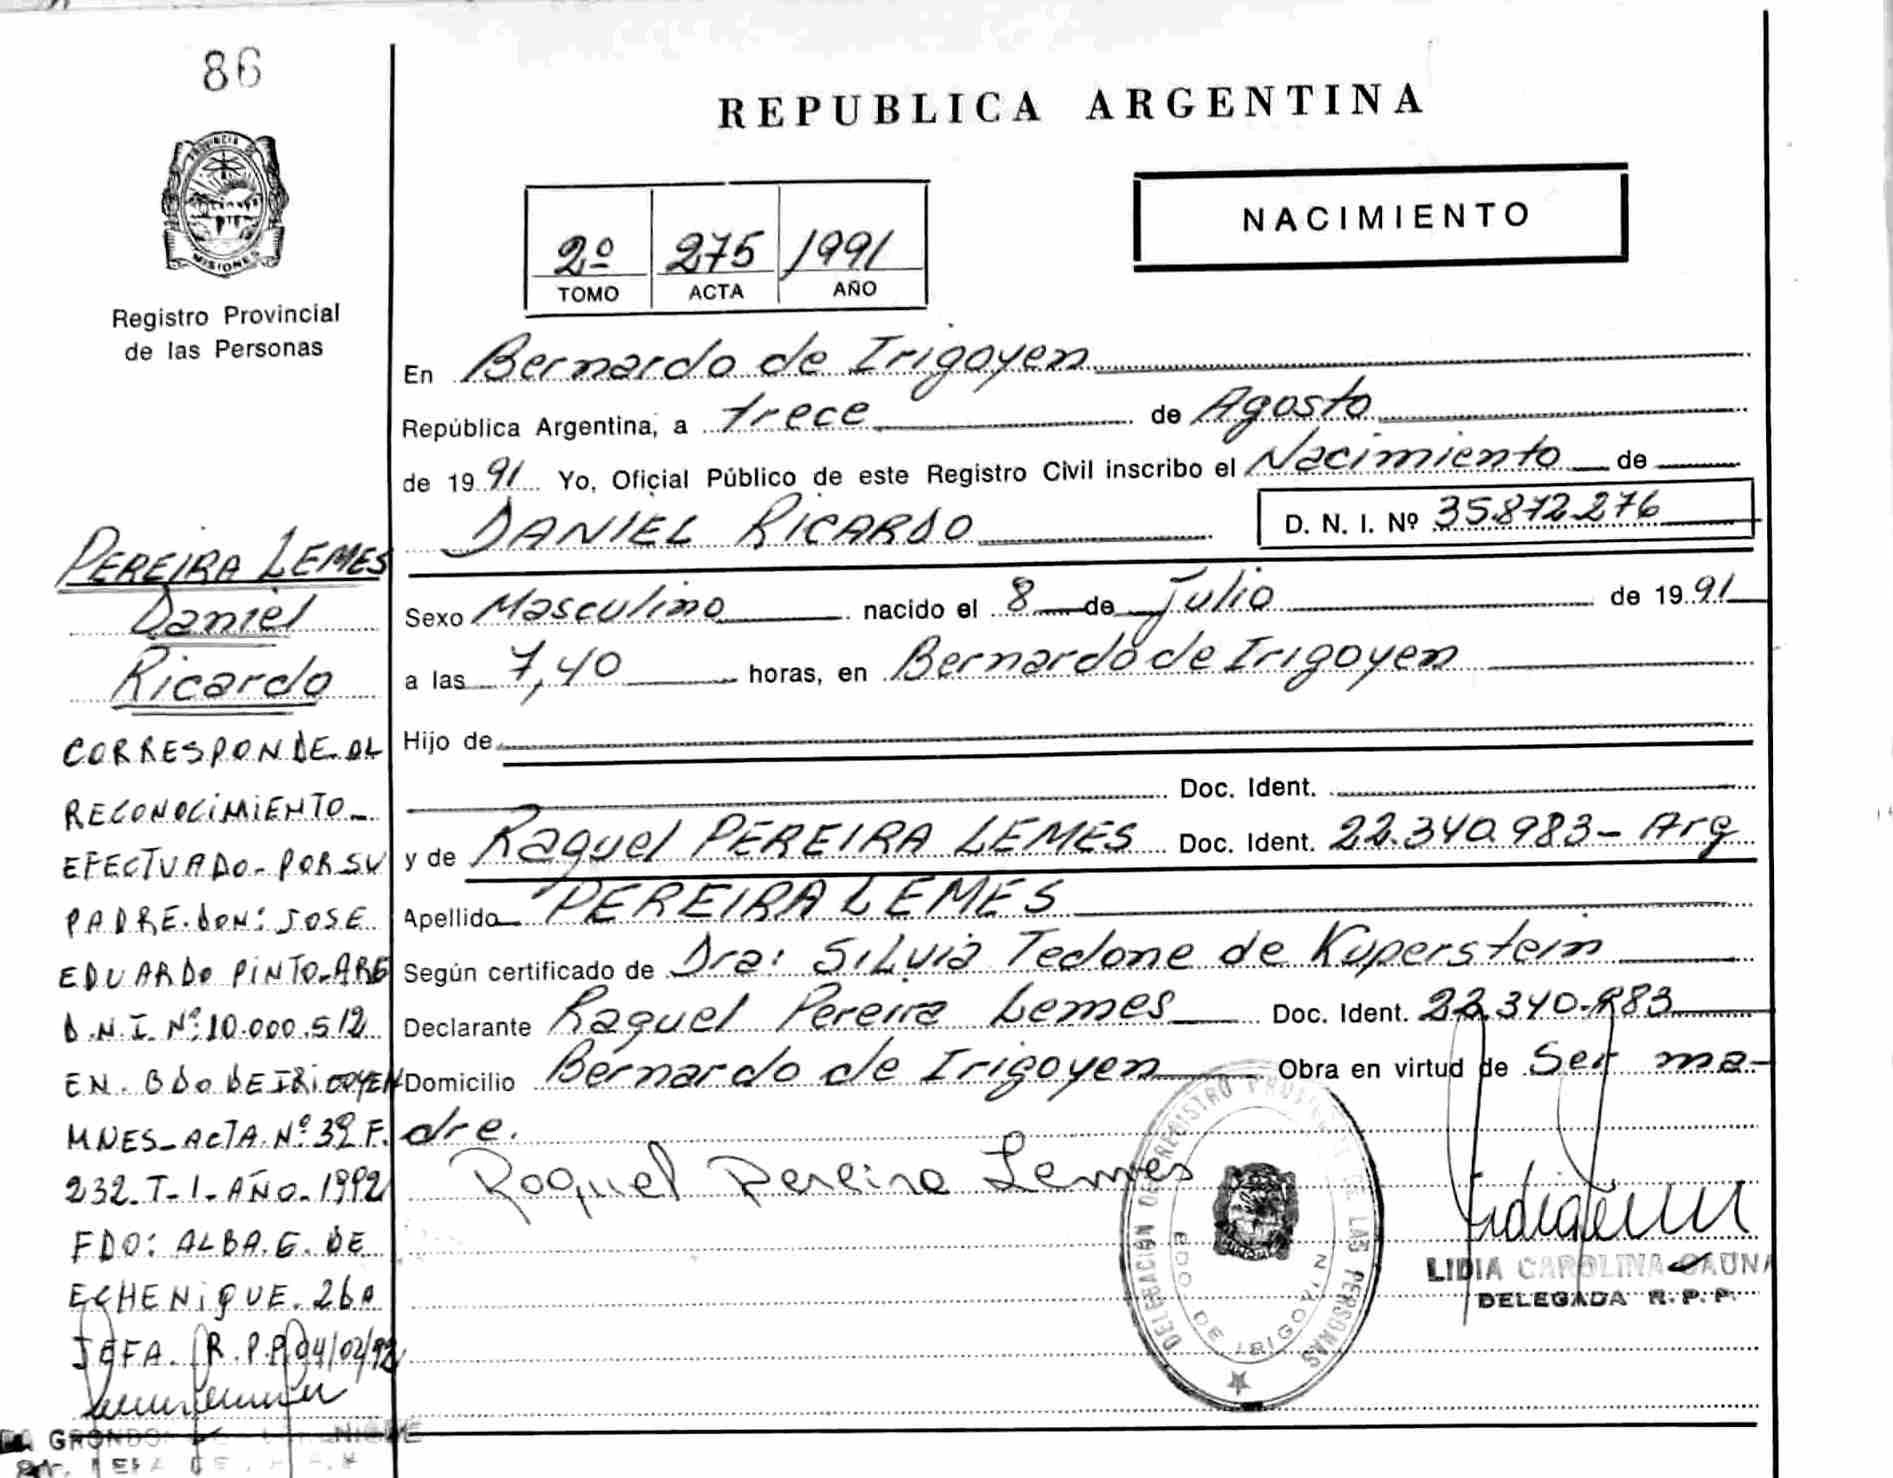 86
PROVINCIA DE
MISIONES
Registro Provincial
de las Personas
PEREIRA LEMES
Daniel
Ricardo
CORRESPONDE AL
RECONOCIMIENTO
EFECTUADO POR SU
PADRE DON: JOSE
EDUARDO PINTO ARG
D.N.I. Nº 10.000.512
EN BDO DE IRIGOYEN
MNES ACTA Nº 39 F.
232 T-1-AÑO-1992
FDO: ALBA G. DE
ECHENIQUE. 2da
JEFA. R.P.P. 04/02/92
REPUBLICA ARGENTINA
2º 275 1991
TOMO ACTA AÑO
NACIMIENTO
En Bernardo de Irigoyen
República Argentina, a trece de Agosto
de 1991 Yo, Oficial Público de este Registro Civil inscribo el Nacimiento de
DANIEL RICARDO D. N. I. Nº 35.872.276
Sexo Masculino nacido el 8 de Julio de 1991
a las 7,40 horas, en Bernardo de Irigoyen
Hijo de
Doc. Ident.
y de Raquel PEREIRA LEMES Doc. Ident. 22.340.983- Arg
Apellido PEREIRA LEMES
Según certificado de Dra: Silvia Tedone de Kuperstein
Declarante Raquel Pereira Lemes Doc. Ident. 22.340.983
Domicilio Bernardo de Irigoyen Obra en virtud de Ser ma-
dre.
Raquel Pereira Lemes
DELEGACIÓN DEL REGISTRO PROVINCIAL DE LAS PERSONAS
BDO DE IRIGOYEN
LIDIA CAROLINA GAUNA
DELEGADA R. P. P.